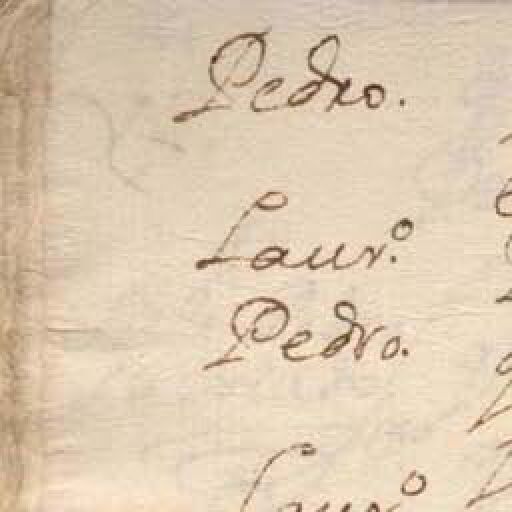 Pedro.
Laur.º
Pedro.
Laur.º